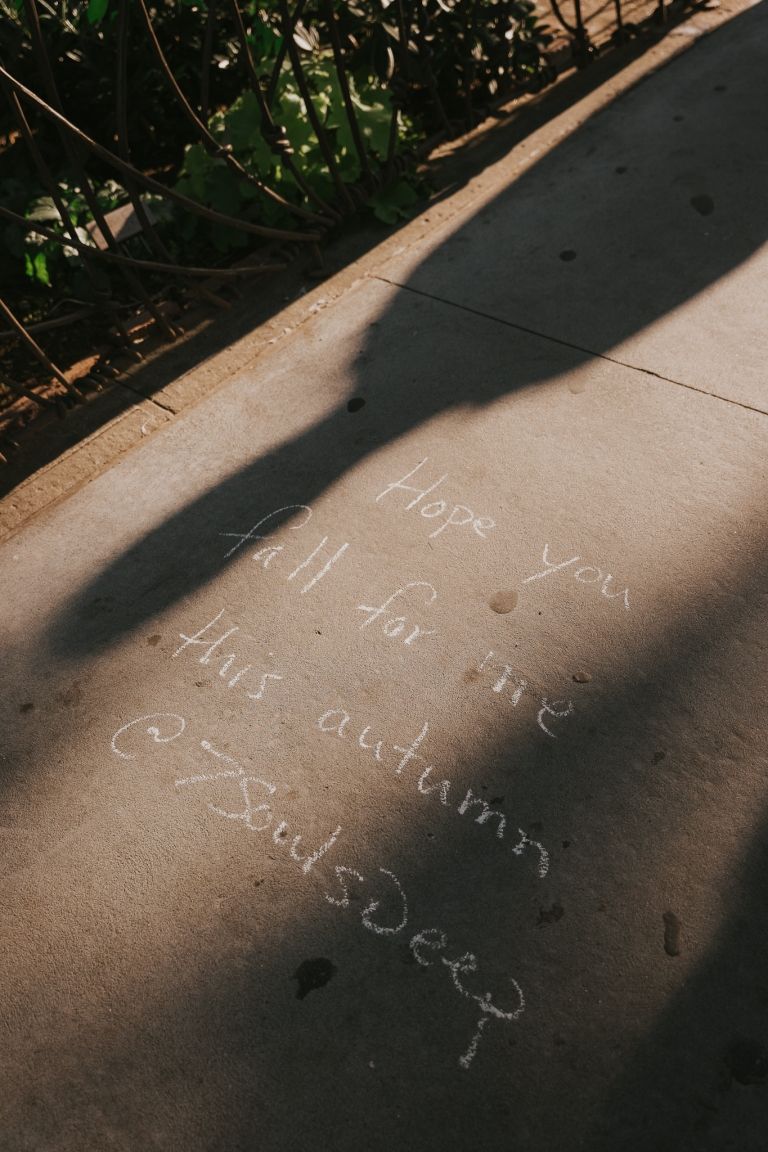 Hope you
fall for me
this autumn
@7SoulsDeep